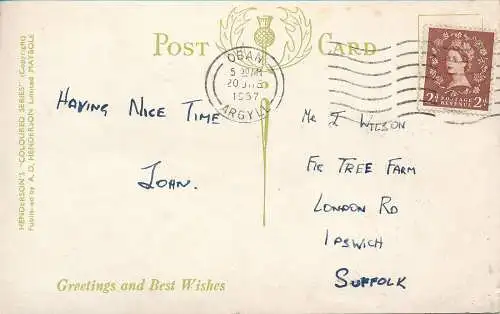 HENDERSON'S "COLOURED SERIES" (Copyright)
Published by A. D. HENDERSON Limited MAYBOLE
POST CARD
OBAN
20
1957
ARGYLL
2D POSTAGE 2D
REVENUE
HAVING NICE TIME
JOHN.
Mr I WILSON
FIR TREE FARM
LONDON RD
IPSWICH
SUFFOLK
Greetings and Best Wishes